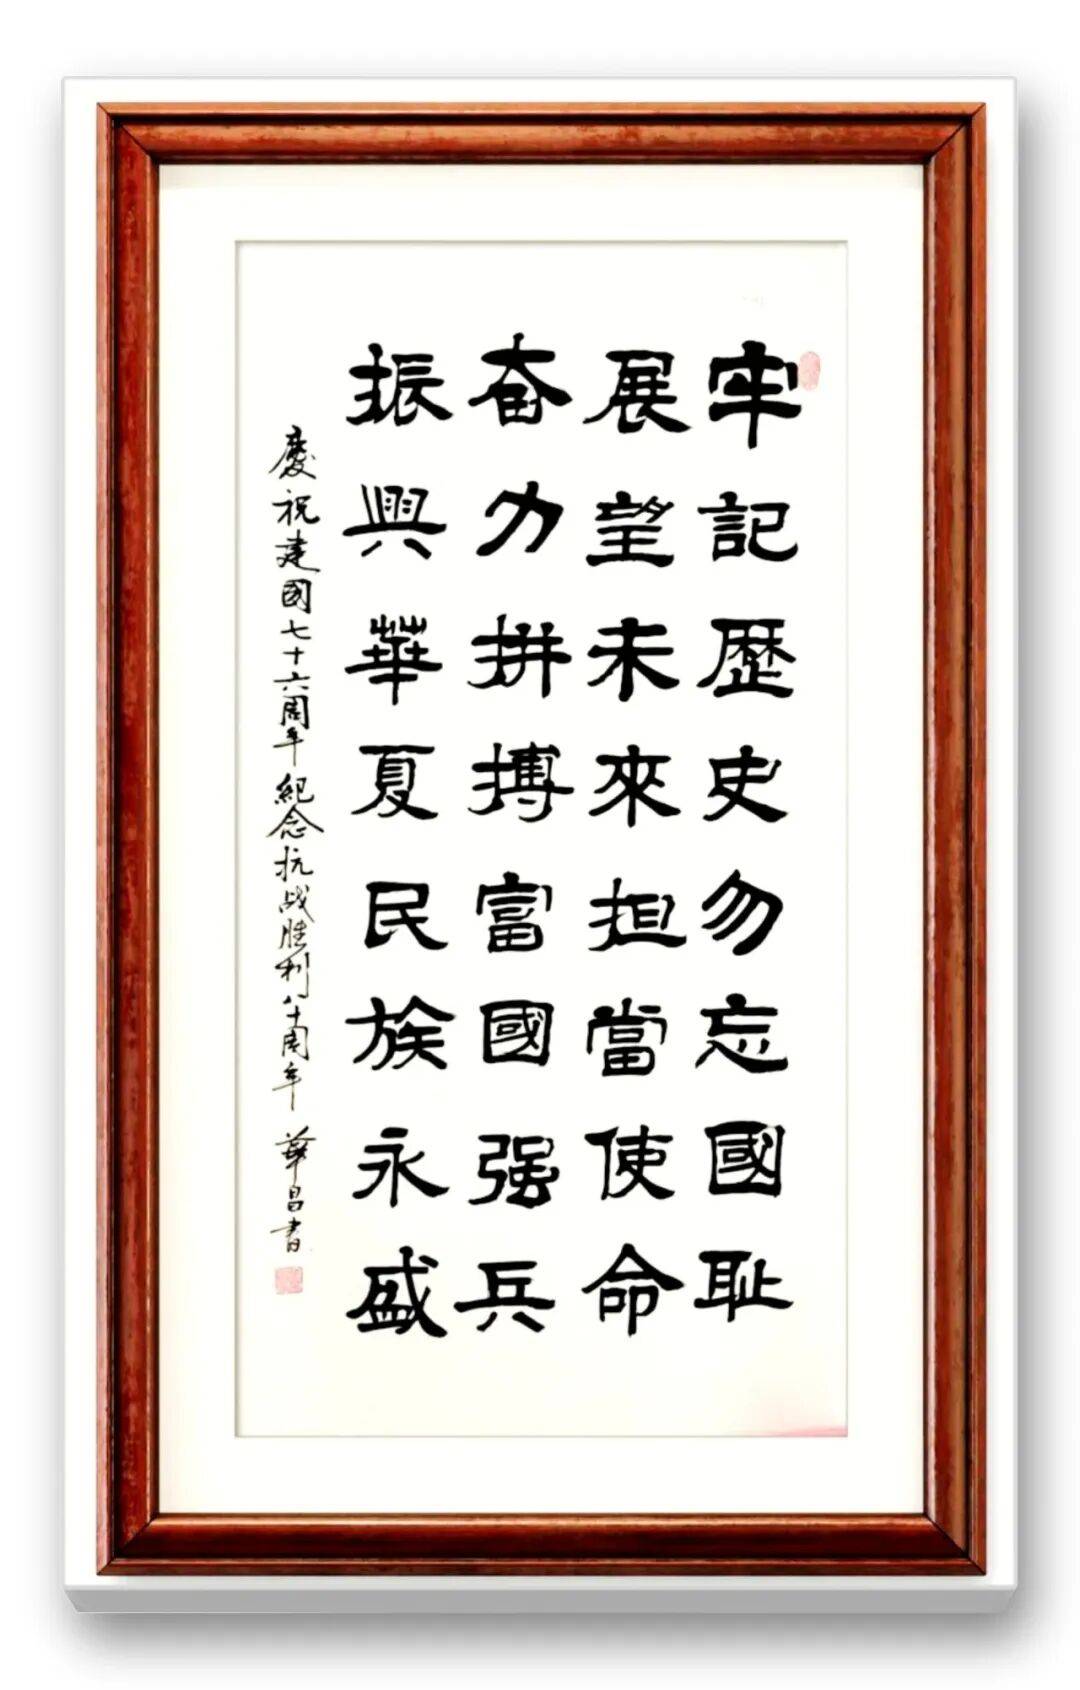 牢記歷史勿忘國耻
展望未來担當使命
奋力拼搏富國强兵
振興華夏民族永盛
慶祝建國七十六周年紀念抗战胜利八十周年 華昌書